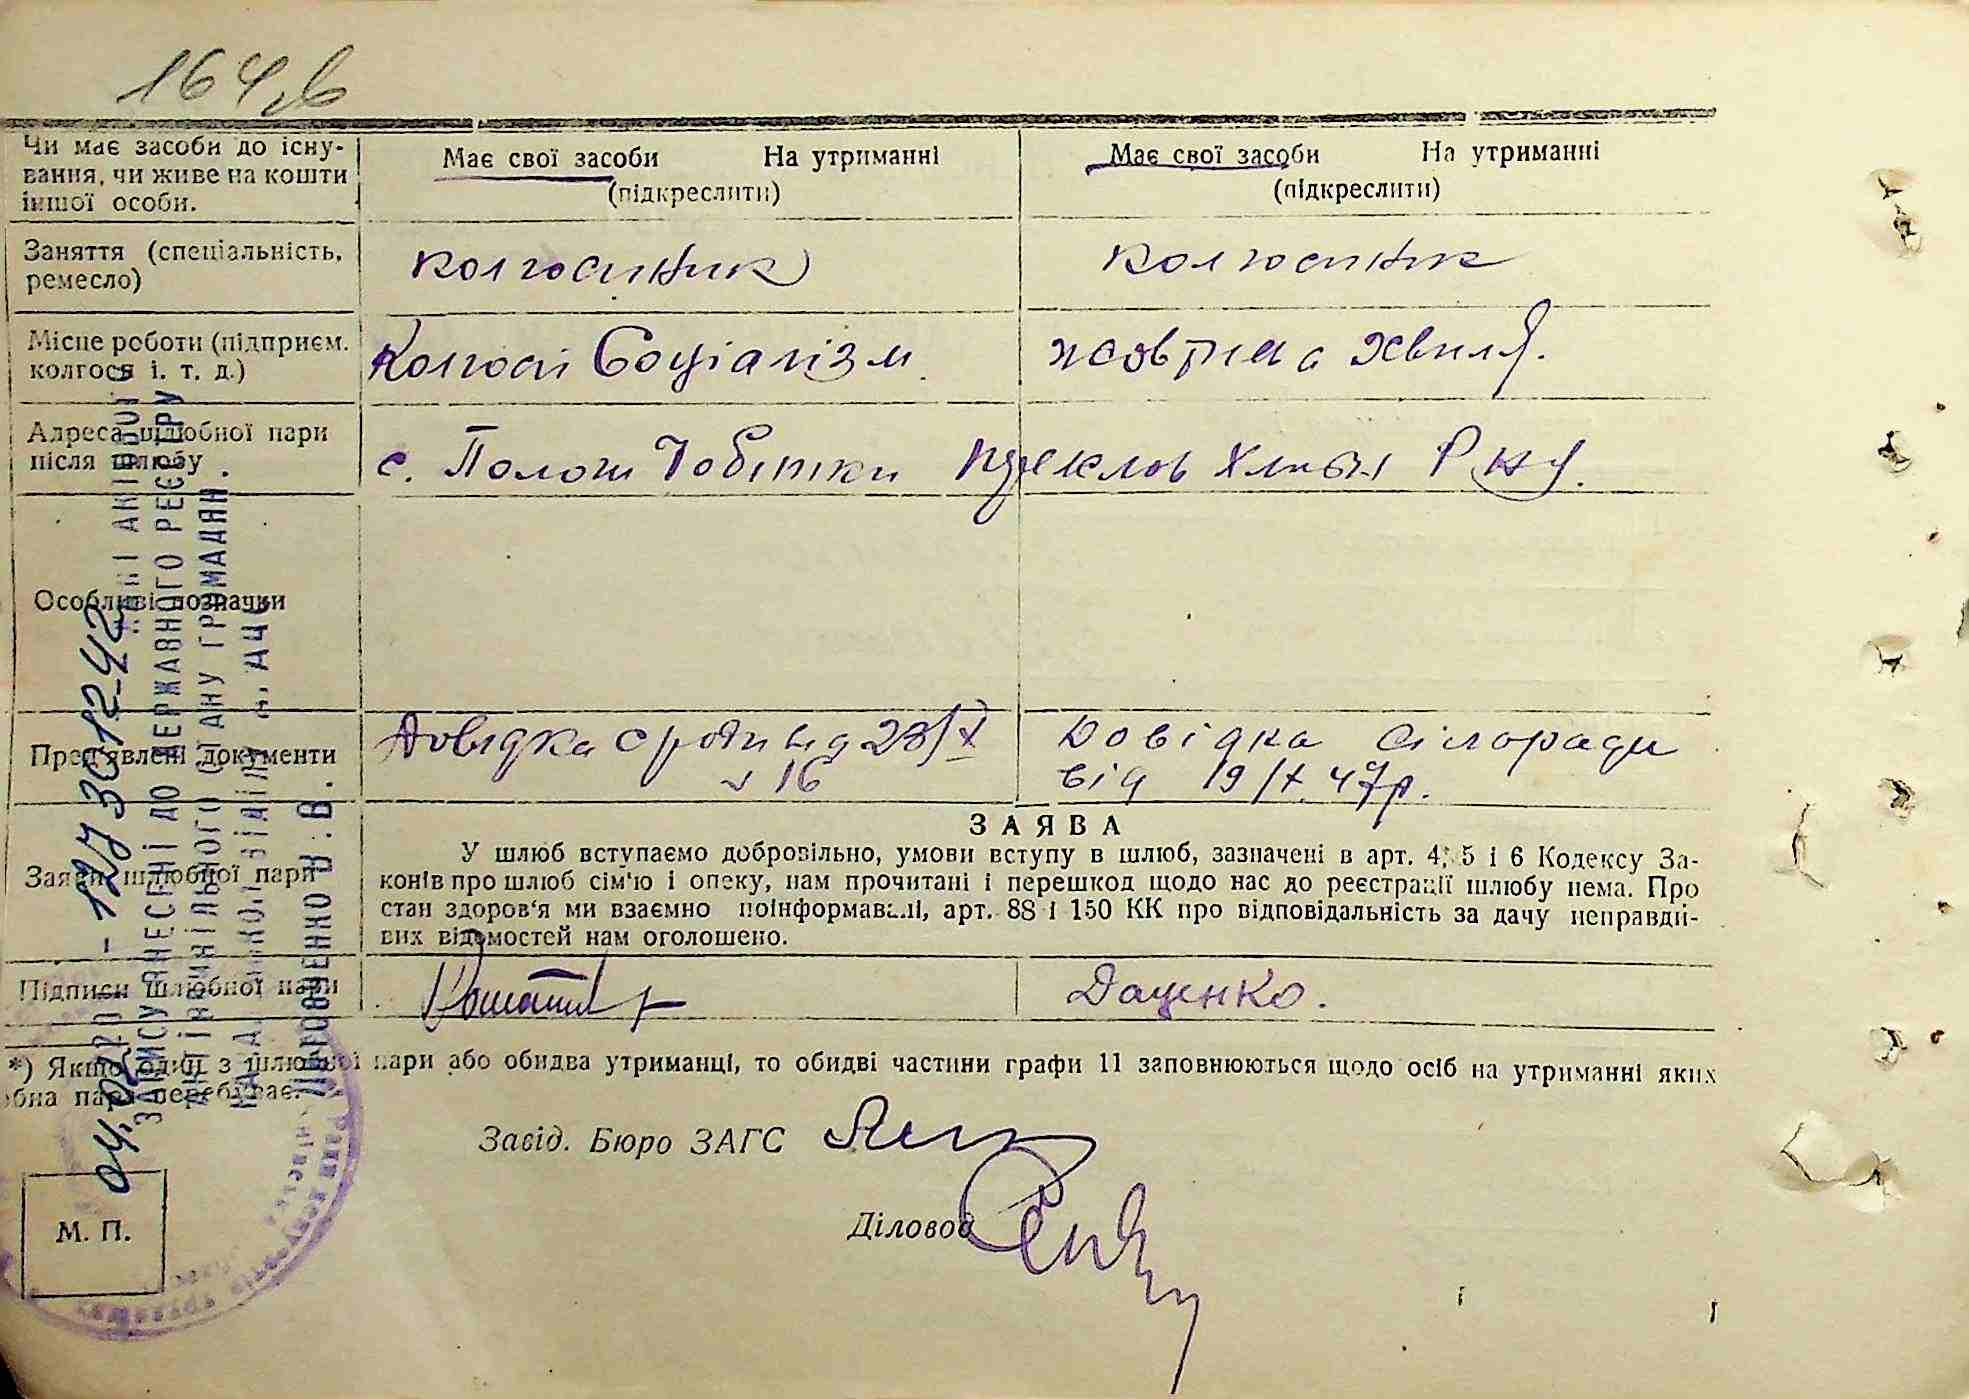 164
Чи має засоби до існу-
вання, чи живе на кошти
іншої особи.
Має свої засоби На утриманні
(підкреслити)
Має свої засоби На утриманні
(підкреслити)
Заняття (спеціальність,
ремесло)
колгоспник
колгоспник
Місце роботи (підприєм.
колгосп і. т. д.)
Колгосп Соціалізм
жовтнева хвиля.
Адреса шлюбної пари
після шлюбу
с. Полош Чобітки
Особливі позначки
Пред'явлені документи
Довідка с ради від 28/X
№ 16
Довідка сілоради
від 19/X 47р.
Заяви шлюбної пари
ЗАЯВА
У шлюб вступаємо добровільно, умови вступу в шлюб, зазначені в арт. 4, 5 і 6 Кодексу За-
конів про шлюб сім'ю і опеку, нам прочитані і перешкод щодо нас до реєстрації шлюбу нема. Про
стан здоров'я ми взаємно поінформавалі, арт. 88 і 150 КК про відповідальність за дачу неправди-
вих відомостей нам оголошено.
Підписи шлюбної пари
Даценко.
*) Якщо один з шлюбної пари або обидва утриманці, то обидві частини графи 11 заповнюються щодо осіб на утриманні яких
бна пара перебуває.
Завід. Бюро ЗАГС
Діловод
М. П.
127 3012-42
ЗАПИСУ ВНЕСЕНІ ДО ДЕРЖАВНОГО РЕЄСТРУ
АКТІВ ЦИВІЛЬНОГО СТАНУ ГРОМАДЯН.